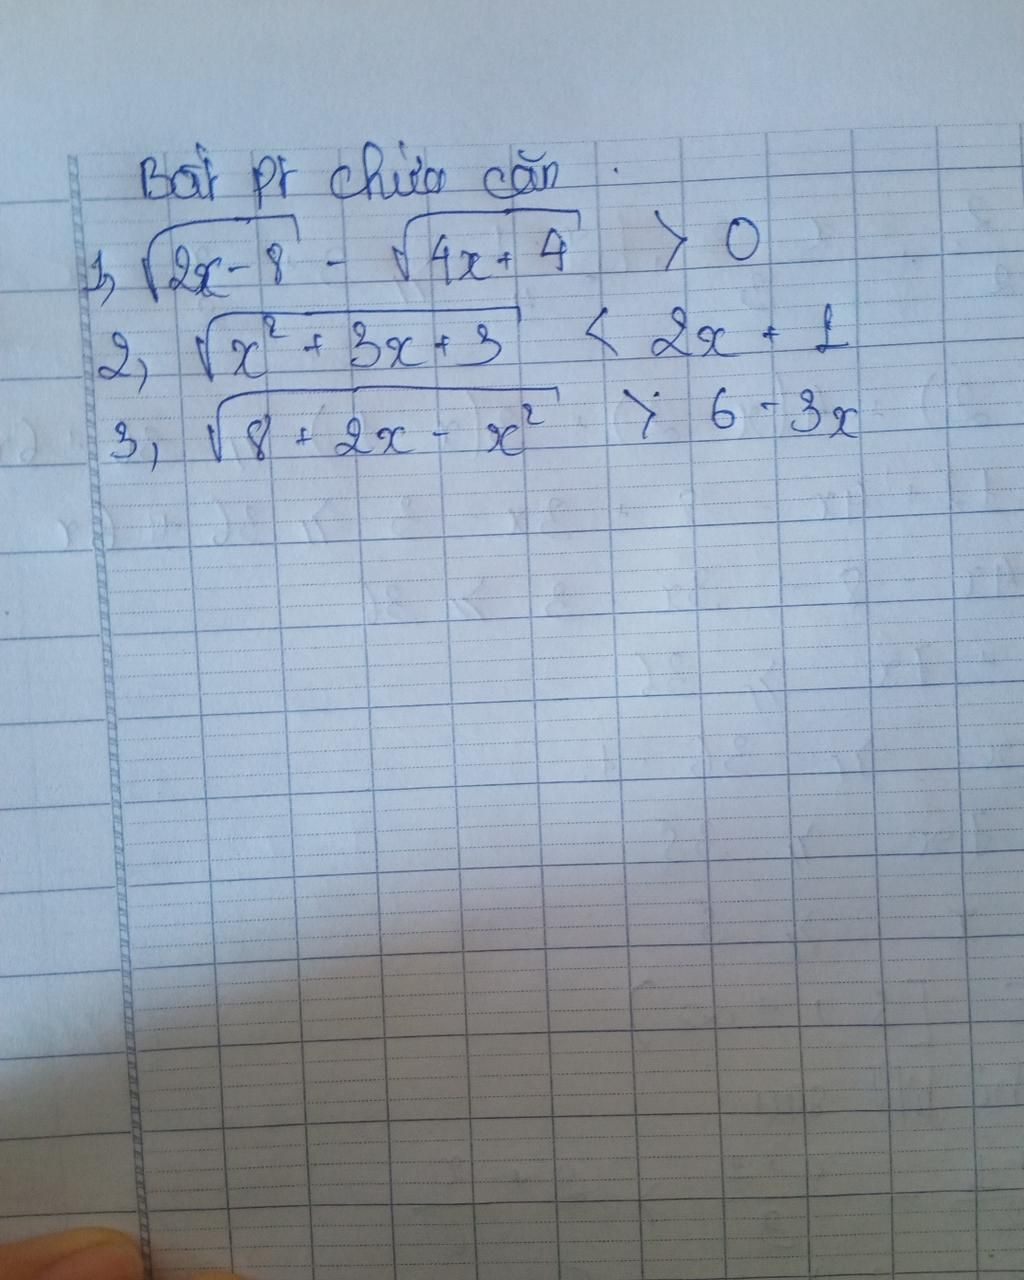 Bất pt chứa căn
1, √(2x - 8) - √(4x + 4) > 0
2, √(x² + 3x + 3) < 2x + 1
3, √(8 + 2x - x²) > 6 - 3x